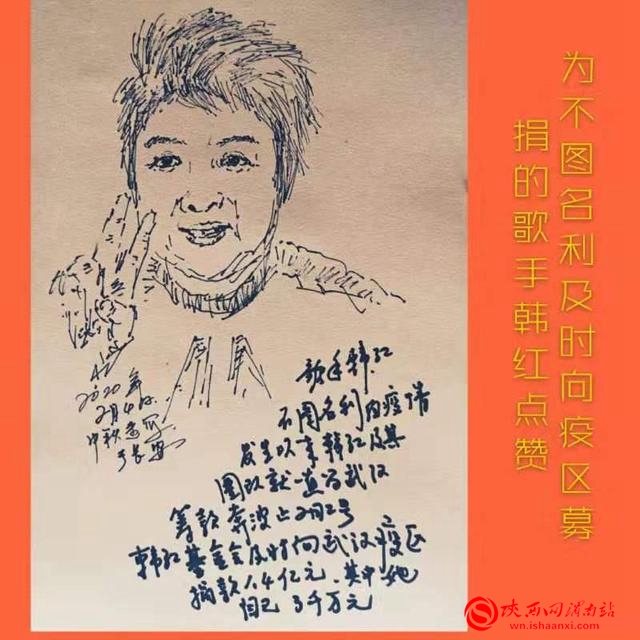 为不图名利及时向疫区募
捐的歌手韩红点赞
歌手韩红
不图名利的疫情
发生以来韩红及其
团队就一直为武汉
筹款奔波止2月2号
韩红基金会及时向武汉疫区
捐款1.4亿元.其中她
自己3千万元
2020年
2月4日.
陕西网渭南站
wn.ishaanxi.com